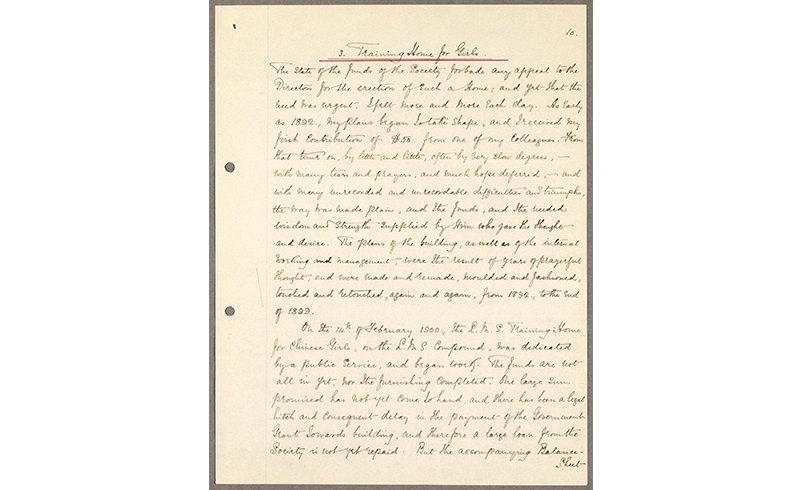 10.
3. Training Home for Girls.
The state of the funds of the Society forbade any appeal to the
Directors for the erection of such a Home; and yet that the
need was urgent, I felt more and more each day. As early
as 1892, my plans began to take shape, and I received my
first contribution of $50. from one of my Colleagues. From
that time on, by little and little, often by very slow degrees, —
with many tears and prayers, and much hope deferred, — and
with many unrecorded and unrecordable difficulties and triumphs,
the way was made plain, and the funds, and the needed
wisdom and strength supplied by Him who gave the thought
and desire. The plans of the building, as well as of the internal
working and management, were the result of years of prayerful
thought, and were made and remade, moulded and fashioned,
touched and retouched, again and again, from 1892, to the end
of 1899.
On the 14th of February 1900, the L.M.S. Training Home
for Chinese Girls, on the L.M.S. Compound, was dedicated
by a public Service, and began work. The funds are not
all in yet, nor the furnishing completed. One large sum
promised has not yet come to hand, and there has been a legal
hitch and consequent delay in the payment of the Government
Grant towards building, and therefore a large loan from the
Society is not yet repaid. But the accompanying Balance-
Sheet